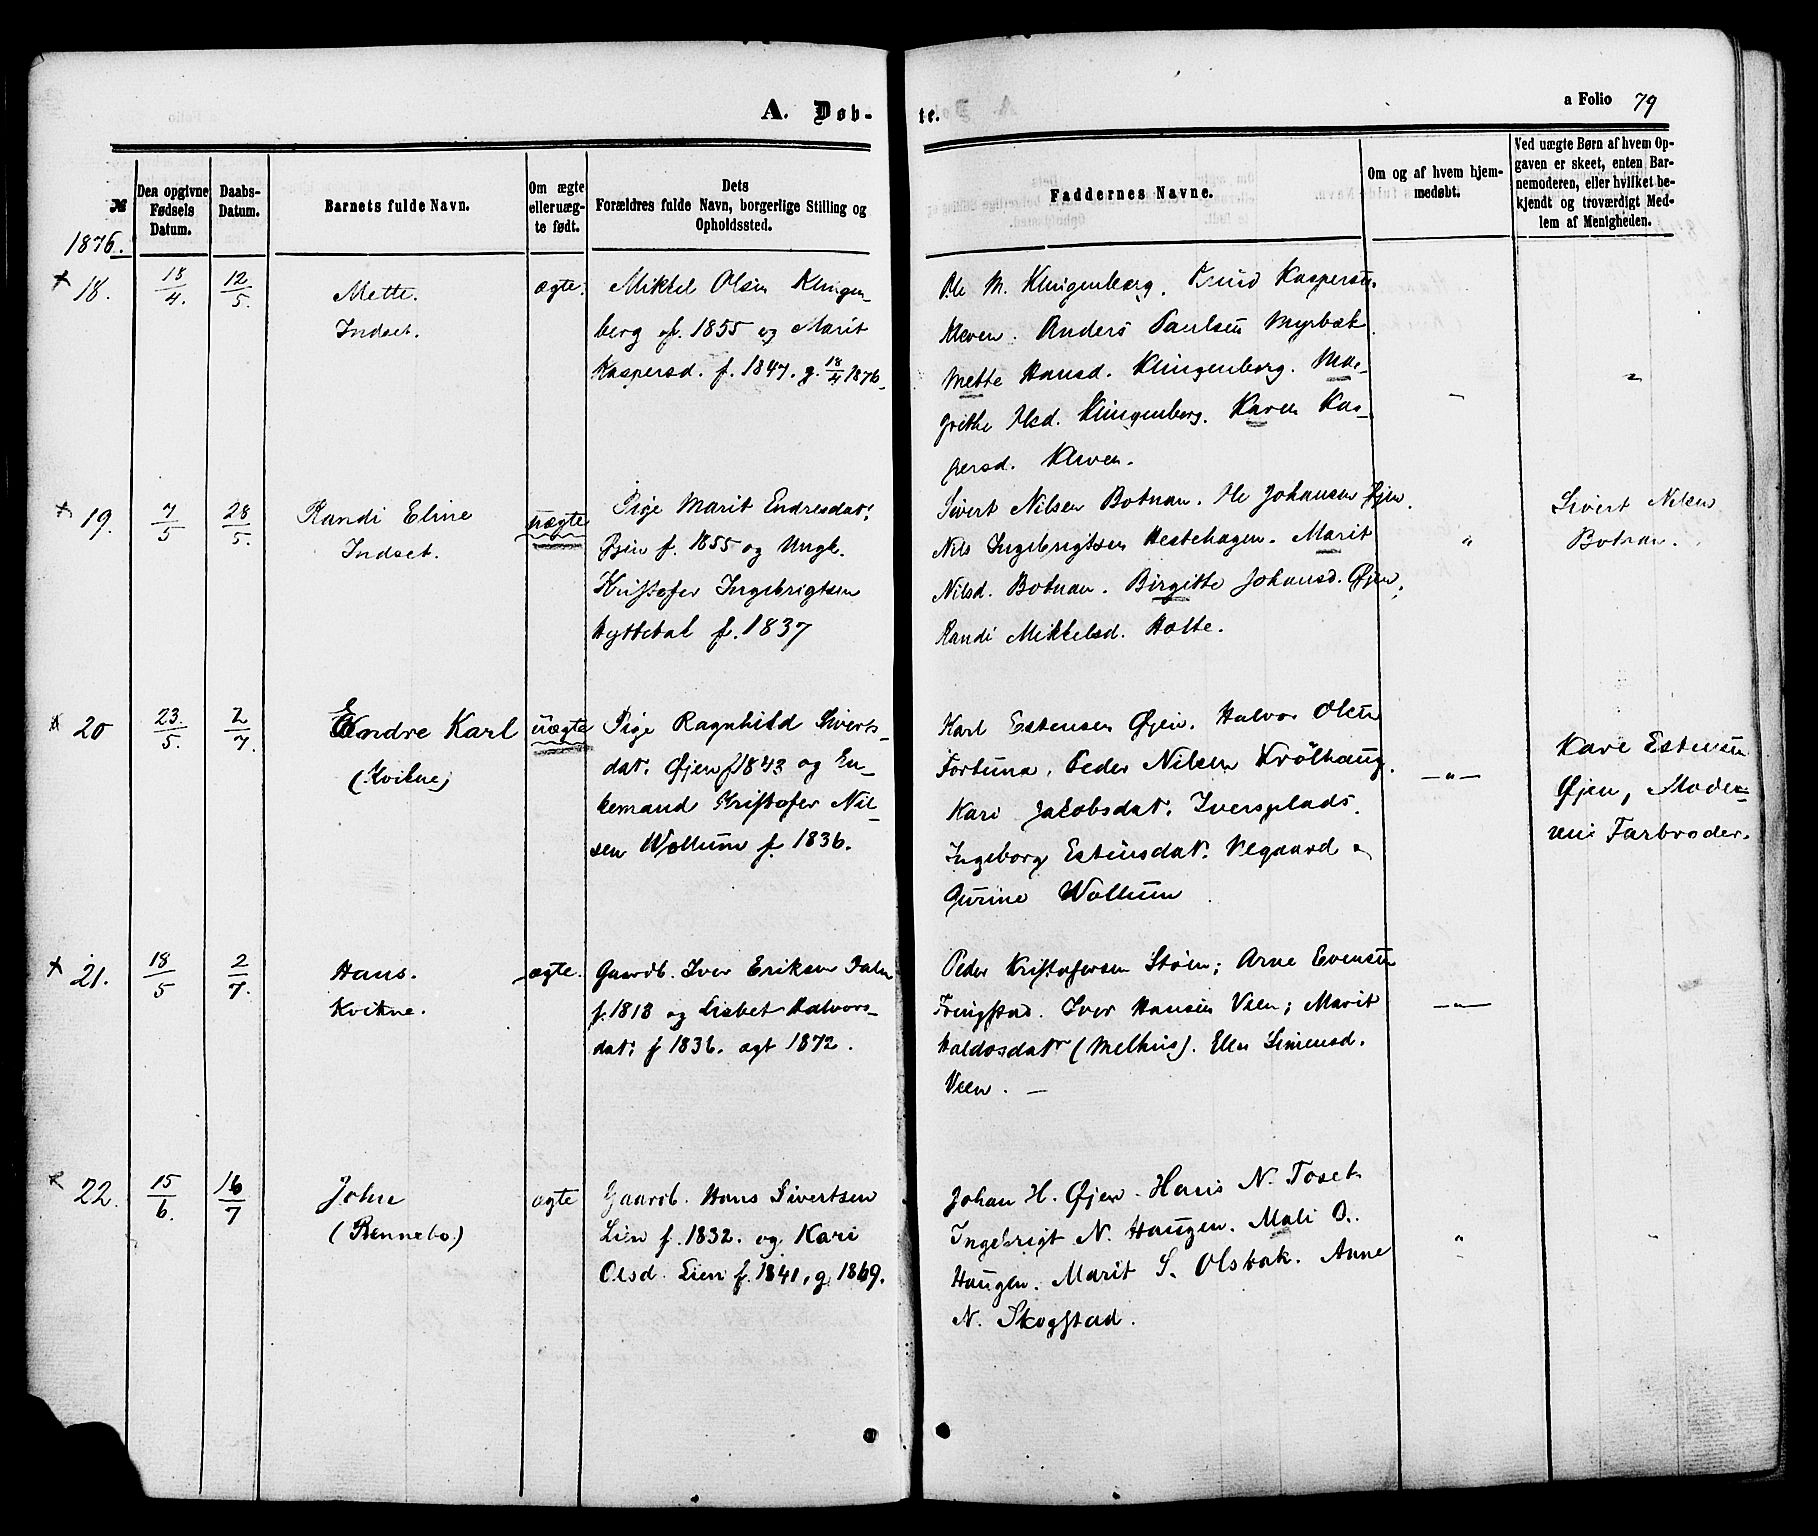 A. Døb-
te.
a Folio 79
№
Den opgivne
Fødsels
Datum.
Daabs-
Datum.
Barnets fulde Navn.
Om ægte
eller uæg-
te født.
Dets
Forældres fulde Navn, borgerlige Stilling og
Opholdssted.
Faddernes Navne.
Om og af hvem hjem-
medøbt.
Ved uægte Børn af hvem Op-
gaven er skeet, enten Bar-
nemoderen, eller hvilket be-
kjendt og troværdigt Med-
lem af Menigheden.
1876.
18. 18/4 12/5.
Mette.
Indset.
ægte.
Mikkel Olsen Klingen-
berg f. 1855 og Marit
Kaspersd. f. 1847. g. 18/4 1876.
Ole M. Klingenberg. Knud Kaspersen
Kleven. Anders Paulsen Myrbæk
Mette Hansd. Klingenberg. Mar-
grethe Olsd. Klingenberg. Karen Kas-
persd. Kleven.
19. 7/5 28/5.
Randi Eline
Indset.
uægte
Pige Marit Endresdat.
Øjen f. 1855 og Ungk.
Kristofer Ingebrigtsen
Hyttebak f. 1837
Sivert Nilsen Botnan. Ole Johansen Øjen.
Nils Ingebrigtsen Hestehagen. Marit
Nilsd. Botnan. Birgitte Johansd. Øjen,
Randi Mikkelsd. Holte.
"
Sivert Nilsen
Botnan.
20 23/5. 2/7.
Endre Karl
(Kvikne)
uægte
Pige Ragnhild Siverts-
dat. Øjen f 1843 og En-
kemand Kristofer Nil-
sen Wollum f. 1836.
Karl Estensen Øjen. Halvor Olsen
Fortuna. Peder Nilsen Krölhaug.
Kari Jakobsdat. Iversplads.
Ingeborg Estensdat. Vegaard o
Gurine Wollum
—"—
Karl Estensen
Øjen, Moder-
ens Farbroder.
21. 18/5 2/7.
Hans.
Kvikne.
ægte.
Gaardb. Iver Eriksen Dalen
f. 1818 og Lisbet Halvors-
dat. f 1836. ægt 1872.
Peder Kristofersen Støen; Arne Evensen
Fringstad. Iver Hansen Veen; Marit
Haldosdatr (Melhus). Elen Simensd.
Veen. —
—"—
22. 15/6. 16/7
John
(Rennebo.)
ægte
Gaardb. Hans Sivertsen
Lien f. 1832. og Kari
Olsd. Lien f. 1841, g. 1869.
Johan H. Øjen. Hans N. Toset
Ingebrigt N. Haugen. Mali O.
Haugen. Marit S. Olsbak. Anne
N. Skogstad.
"